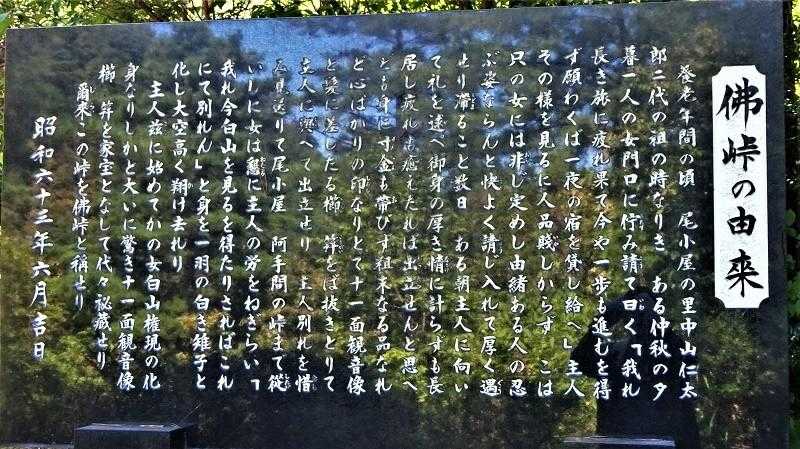 佛峠の由来
養老年間の頃　尾小屋の里中山仁太
郎二代の祖の時なりき　ある仲秋の夕
暮一人の女門口に佇み請て曰く「我れ
長き旅に疲れ果て今や一歩も進むを得
ず願わくば一夜の宿を貸し給へ」主人
その様を見るに人品賤しからず　こは
只の女には非じ定めし由緒ある人の忍
ぶ姿ならんと快よく請じ入れて厚く遇
せり滞ること数日　ある朝主人に向い
て礼を述べ御身の厚き情に計らずも長
居し疲れも癒えたれば出立せんと思へ
ども身に寸金も帯びず粗末なる品なれ
ど心ばかりの印なりとて十一面観音像
と髪に差したる櫛　笄をば抜きとりて
主人に遺へて出立せり　主人別れを惜
み見送りて尾小屋　阿手間の峠まで従
いしに女は懇に主人の労をねぎらい「
我れ今白山を見るを得たりさればこれ
にて別れん」と身を一羽の白き雉子と
化し大空高く翔け去れり
主人茲に始めてかの女白山権現の化
身なりしかと大いに驚き十一面観音像
櫛　笄を家宝となして代々秘蔵せり
爾来この峠を佛峠と称せり
昭和六十三年六月吉日